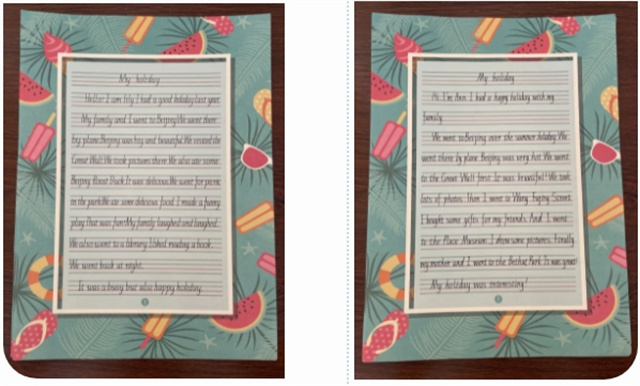 My holiday
Hello! I am Lily. I had a good holiday last year.
My family and I went to Beijing. We went there
by plane. Beijing was big and beautiful. We visited the
Great Wall. We took pictures there. We also ate some
Beijing Roast Duck. It was delicious. We went for picnic
in the park. We ate some delicious food. I made a funny
play. That was fun! My family laughed and laughed.
We also went to a library. I liked reading a book.
We went back at night.
It was a busy but also happy holiday.
My holiday
Hi, I'm Ann. I had a happy holiday with my
family.
We went to Beijing over the summer holiday. We
went there by plane. Beijing was very hot. We went
to the Great Wall first. It was beautiful! We took
lots of photos. Then I went to Wang Fujing Street.
I bought some gifts for my friends. And I went
to the Place Museum. I drew some pictures. Finally
my mother and I went to the Park. It was great!
My holiday was interesting!